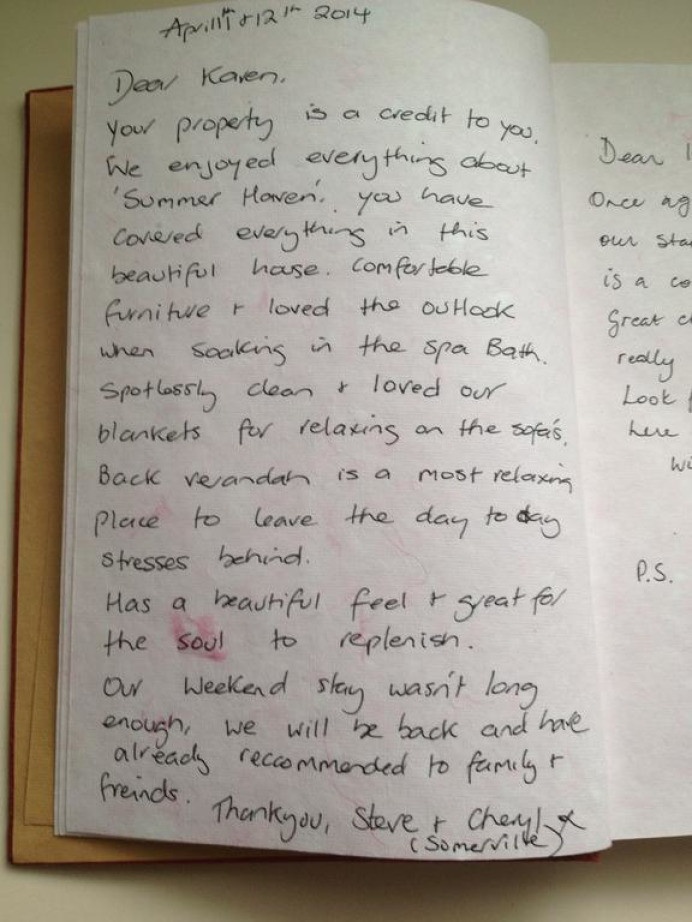 April 11th + 12th 2014
Dear Karen,
Your property is a credit to you.
We enjoyed everything about
'Summer Haven'. you have
covered everything in this
beautiful house. Comfortable
furniture + loved the outlook
when soaking in the spa Bath.
Spotlossly clean + loved our
blankets for relaxing on the sofa's.
Back verandah is a most relaxing
place to leave the day to day
stresses behind.
Has a beautiful feel + great for
the soul to replenish.
Our weekend stay wasn't long
enough, we will be back and have
already reccommended to family +
freinds.
Thankyou, Steve + Cheryl x
(Somerville)
Dear
Once ag
our sta
is a co
Great c
really
Look
here
wi
P.S.